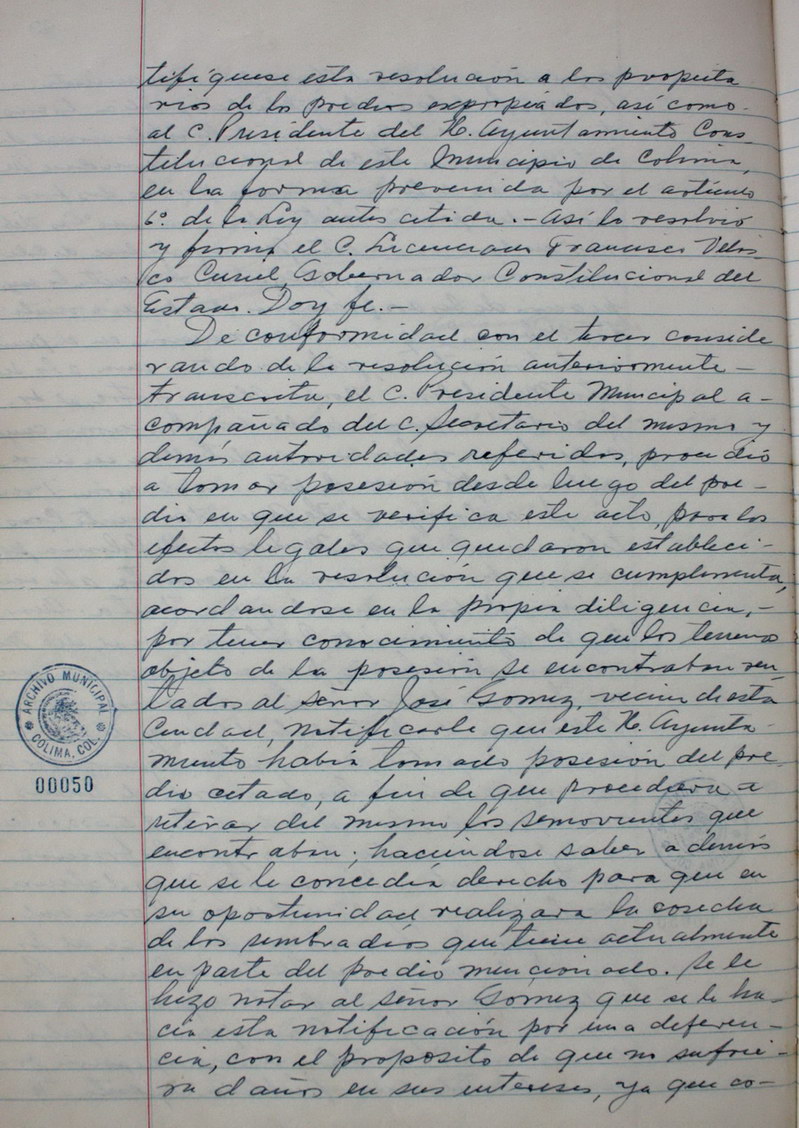 tifíquese esta resolución a los propieta
rios de los predios expropiados, así como-
al C. Presidente del H. Ayuntamiento Cons_
titucional de este Municipio de Colima,
en la forma prevenida por el artículo
6º. de la Ley antes citida.- Así lo resolvió
y firma el C. Licenciado Francisco Velas-
co Curiel, Gobernador Constitucional del
Estado. Doy fe.-
De conformidad con el tercer conside
rando de la resolución anteriormente-
transcrita, el C. Presidente Muncipal a-
compañado del C. Secretario del mismo y
demás autoridades referidas, procedió
a tomar posesión desde luego del pre-
dio en que se verifica este acto, para los
efectos legales que quedaron estableci-
dos en la resolución que se cumplimenta,
acordandose en la propia diligencia,-
por tener conocimiento de que los terrenos
objeto de la posesión se encontraban ren-
tados al señor José Gomez, vecino de esta
Ciudad, notificarle que este H. Ayunta-
miento había tomado posesión del pre-
dio citado, a fin de que procediera a
retirar del mismo los semovientes que
encontraban; haciendose saber además
que se le concedía derecho para que en
su oportunidad realizara la cosecha
de los sembradíos que tiene actualmente
en parte del predio mencionado. Se le
hizo notar al señor Gómez que se le ha-
cía esta notificación por una deferen-
cia, con el proposito de que no sufrie-
ra daños en sus intereses, ya que co-
ARCHIVO MUNICIPAL
COLIMA, COL.
00050